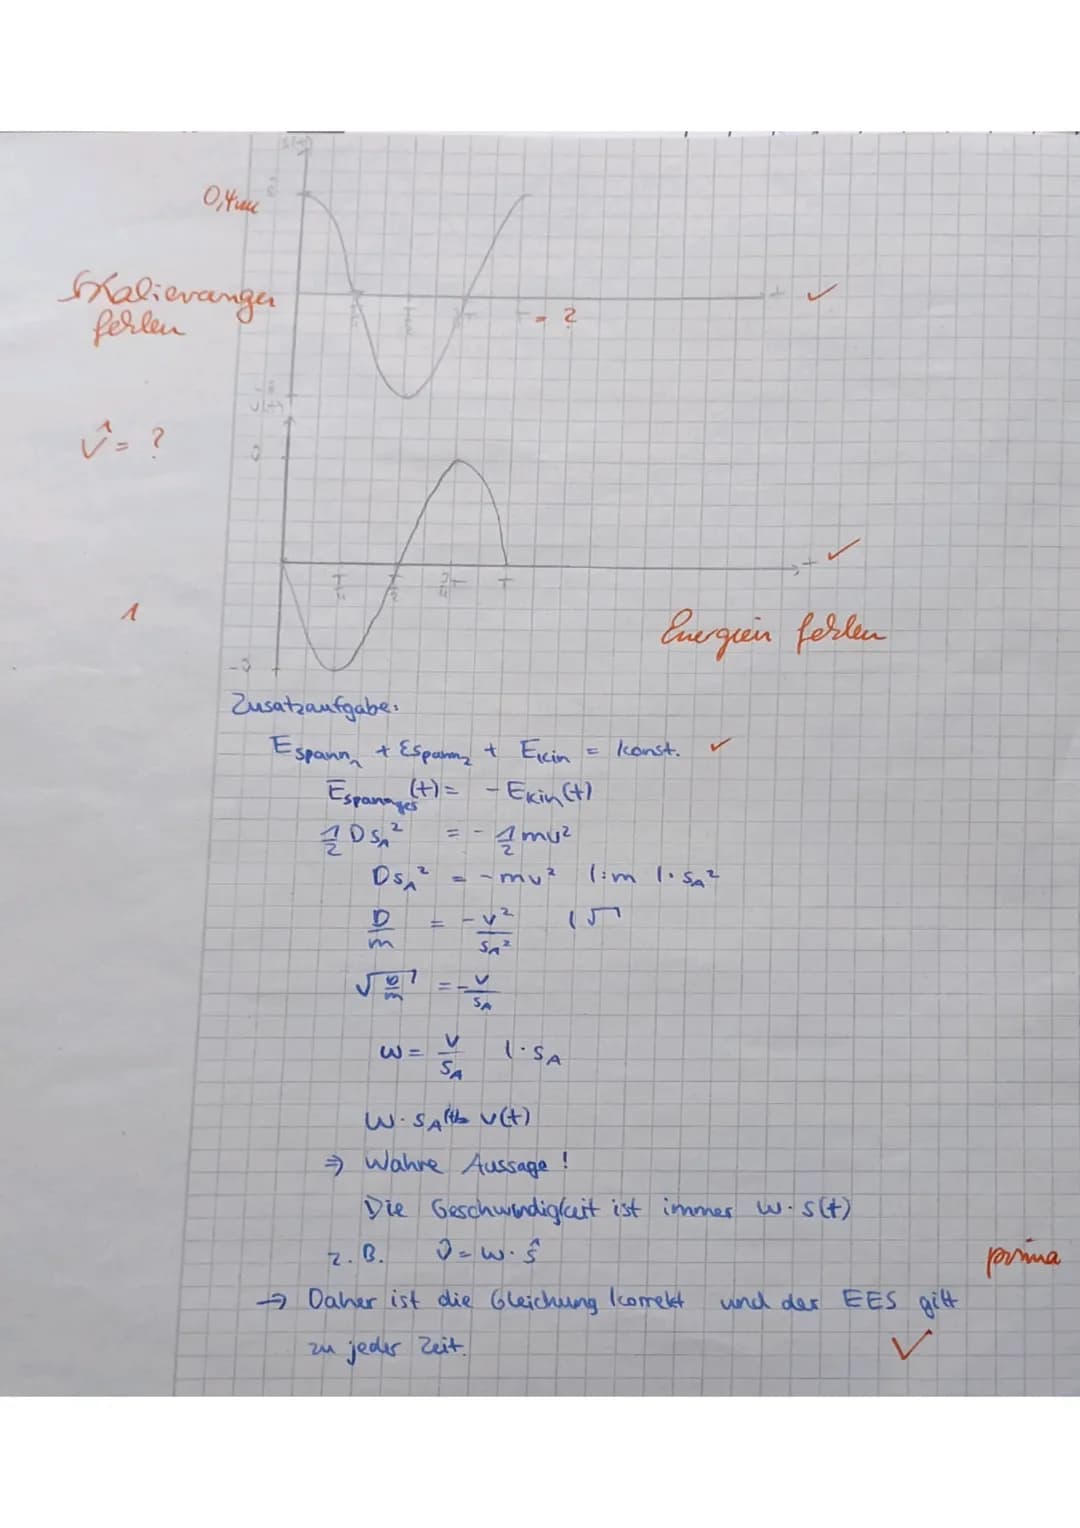 s(t)
0,4m
Skalierungen
fehlen
t ✓
T = ?
v(t)
v̂ = ?
v̂
t ✓
T/4 T/2 3/4 T T
1
Energien fehlen
-v̂
Zusatzaufgabe:
E_spann₁ + E_spann₂ + E_kin = konst. ✓
E_spannges(t) = - E_kin(t)
1/2 D s_A² = - 1/2 mv²
D s_A² = - mv² |:m |· s_A²
D/m = - v²/s_A² |√
√(D/m) = - v/s_A
ω = v/s_A |· s_A
ω · s_A(t) = v(t)
⇒ Wahre Aussage !
Die Geschwindigkeit ist immer ω · s(t)
z. B. v̂ = ω · ŝ
prima
→ Daher ist die Gleichung korrekt und der EES gilt
zu jeder Zeit. ✓